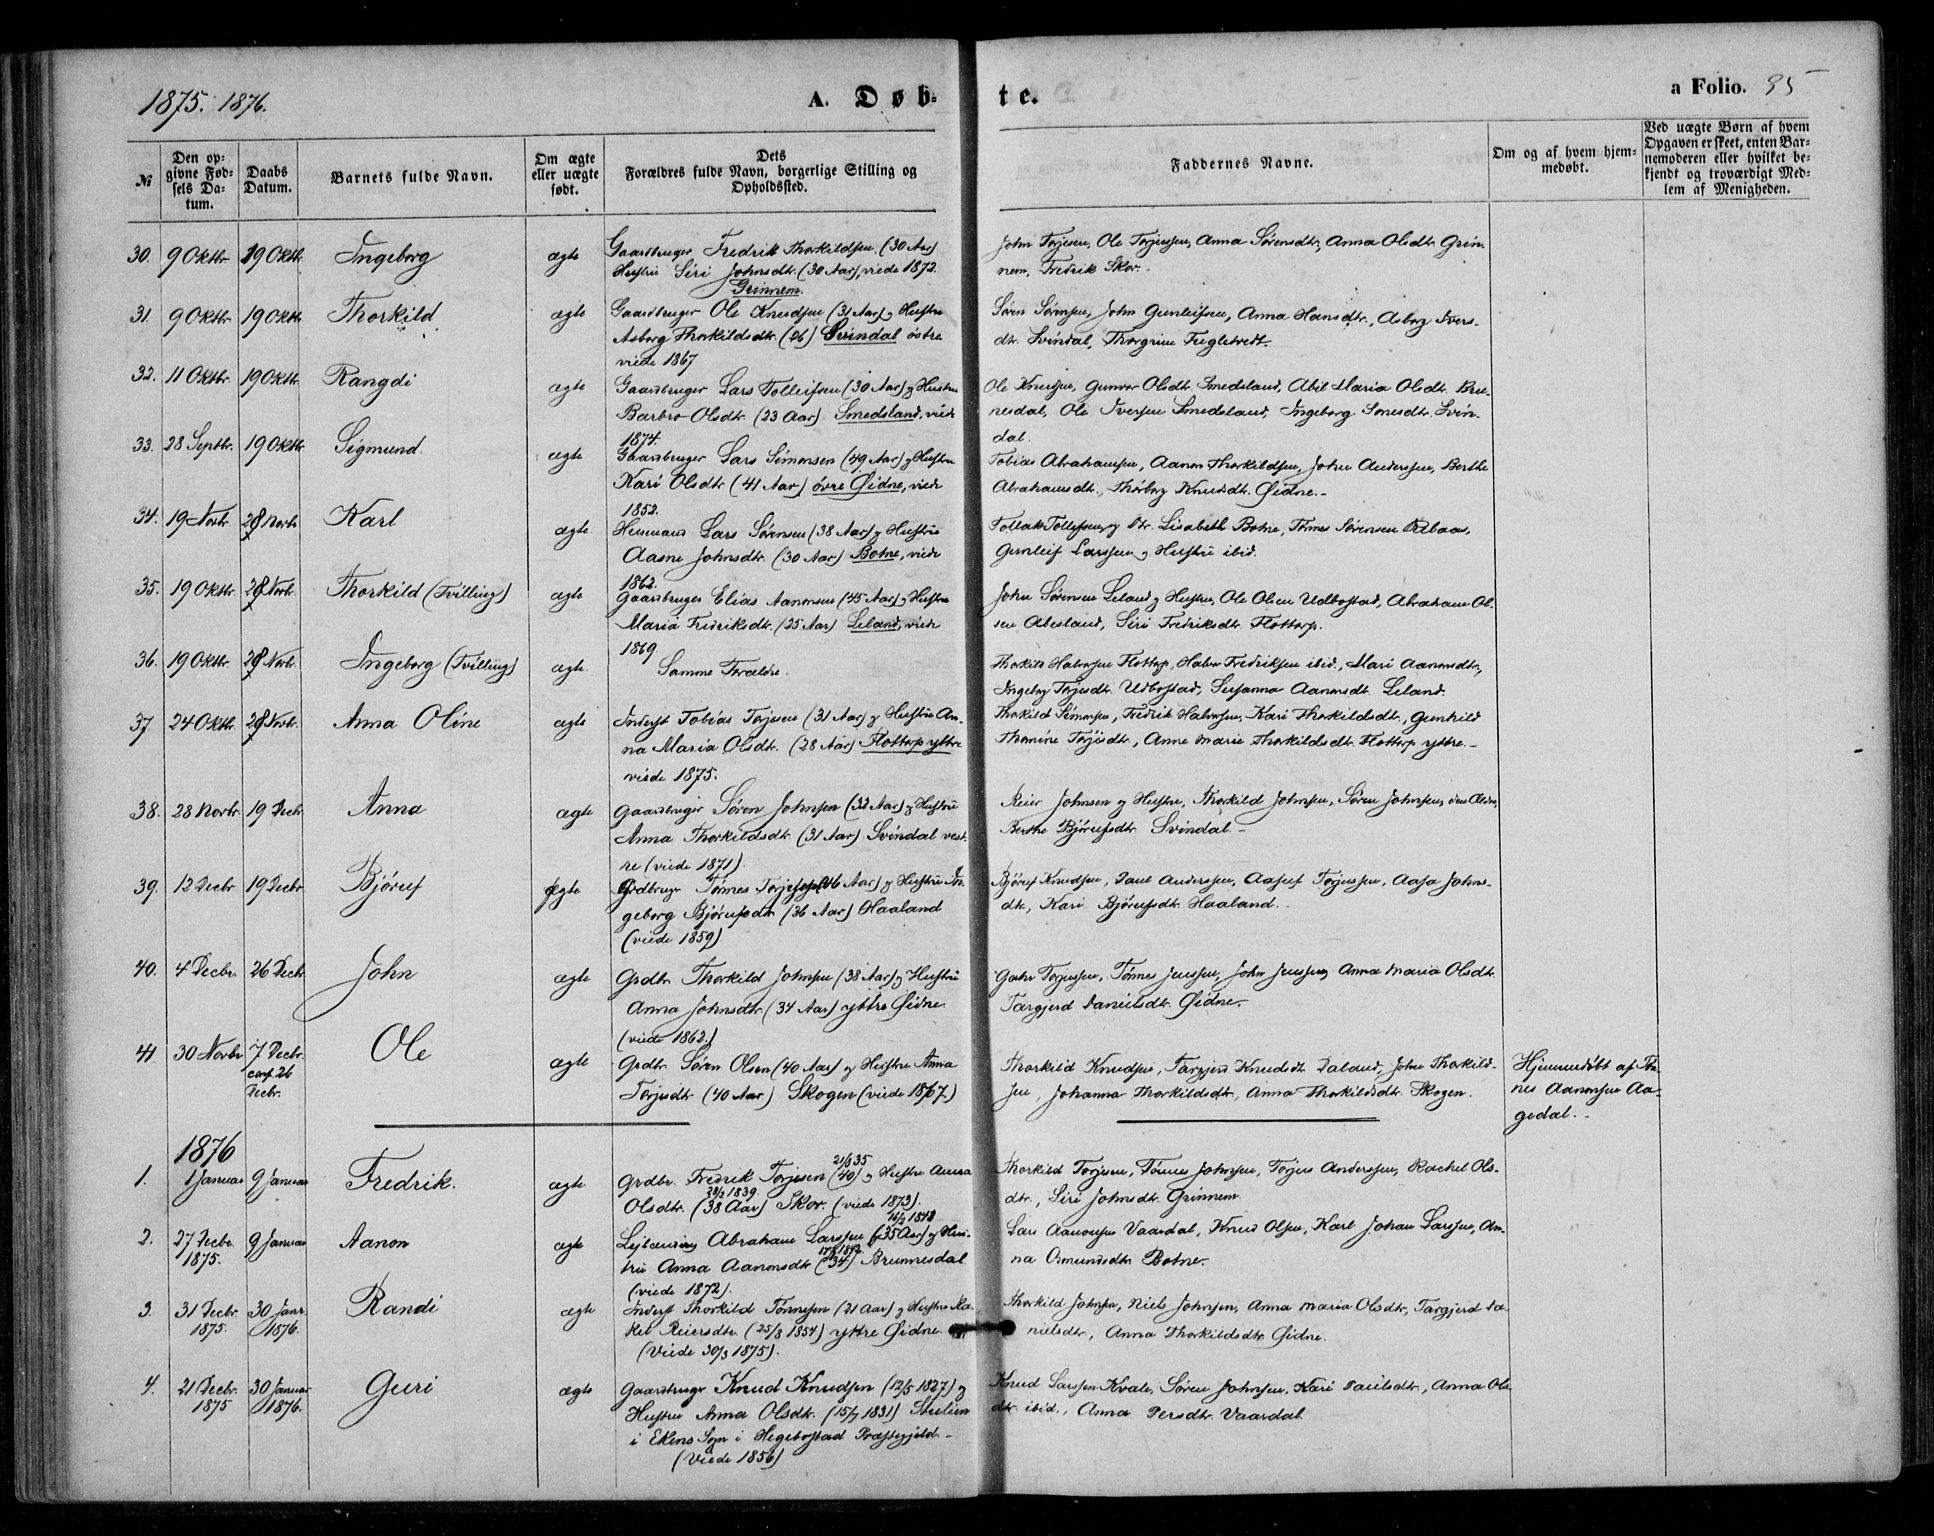 1875. 1876.
A. Døb-
te.
a Folio. 35
№
Den op-
givne Fød-
sels Da-
tum.
Daabs
Datum.
Barnets fulde Navn.
Om ægte
eller uægte
født.
Dets
Forældres fulde Navn, borgerlige Stilling og
Opholdssted.
Faddernes Navne.
Om og af hvem hjem-
medøbt.
Ved uægte Børn af hvem
Opgaven er skeet, enten Bar-
nemoderen eller hvilket be-
kjendt og troværdigt Med-
lem af Menigheden.
30. 9 Oktbr. 19 Oktbr. Ingeborg ægte Gaardbruger Fredrik Thorkildsen (30 Aar)
Hustru Siri Johnsdtr. (30 Aar), viede 1872.
Grinnem.
John Torjesen, Ole Torjussen, Anna Sørensdtr, Anna Olsdtr. Grin-
nem, Fredrik Skor.-
31. 9 Oktbr. 19 Oktbr. Thorkild ægte Gaardbruger Ole Knudsen (31 Aar) og Hustru
Asborg Thorkildsdtr. (26) Svindal østre
viede 1867
Søren Sørensen, John Gunleifsen, Anna Hansdtr., Asborg Ivers-
dtr. Svindal, Thorgrim
32. 11 Oktbr. 19 Oktbr. Rangdi ægte Gaardbruger Lars Tolleifsen (30 Aar) og Hustru
Barbro Olsdtr. (23 Aar) Smedsland, viede
1874.
Ole Knudsen, Gunvor Olsdtr. Smedsland, Abil Maria Olsdtr. Bru-
nesdal, Ole Iversen Smedsland, Ingeborg Svin-
dal.
33. 28 Septbr. 19 Oktbr. Sigmund. ægte Gaardbruger Lars Simonsen (49 Aar) og Hustru
Kari Olsdtr (41 Aar) øvre Øidne, viede
1852.
Tobias Abrahamsen, Aanon Thorkildsen, John Anderssen, Berthe
Abrahamsdtr., Thorborg Knudsdtr. Øidne.-
34. 19 Novbr. 28 Novbr. Karl ægte Husmand Lars Sørensen (38 Aar) og Hustru
Aasne Johnsdtr. (30 Aar) Botne, viede
1862.
Tollak Tollefsen og Dtr. Lisabeth Botne, Tømes Sørensen
Gunleif Larssen og Hustru ibid.
35. 19 Oktbr. 28 Novbr. Thorkild (Tvilling) ægte Gaardbruger Elias Aanonsen (45 Aar) og Hustru
Maria Fredriksdtr. (25 Aar) Leland, viede
1869
John Sørensen Leland og Hustru, Ole Olsen Udbostad, Abraham Ol-
sen Abesland, Siri Fredriksdtr. Flottorp.
36. 19 Oktbr. 28 Novbr. Ingeborg (Tvilling) ægte. Samme Forældre.
Thorkild Halvorsen Flottorp, Halvor Fredriksen ibid., Mari Aanonsdtr.,
Ingeborg Torjesdtr. Udbostad, Susanna Aanonsdt. Leland.
37. 24 Oktbr. 28 Novbr. Anna Oline ægte Inderst Tobias Torjesen (31 Aar) og Hustru An-
na Maria Olsdt. (28 Aar) Flottorp yttre
viede 1875.
Thorkild Simonsen, Fredrik Halvorsen, Kari Thorkildsdtr., Gunhild
Thomine Torjesdtr., Anne Marie Thorkildsdtr. Flottorp yttre.-
38. 28 Novbr. 19 Decbr. Anna ægte Gaardbruger Søren Johnsen (32 Aar) og Hustru
Anna Thorkildsdtr. (31 Aar) Svindal vest-
re (viede 1871).
Reier Johnsen og Hustru, Thorkild Johnsen, Søren Johnsen, den Ældre,
Berthe Bjørufsdtr. Svindal-
39. 12 Decbr 19 Decbr. Bjøruf ægte Grdbruger Tømes Torjussen (46 Aar) og Hustru In-
geborg Bjørufsdtr. (36 Aar) Haaland
(viede 1859)
Bjøruf Knudsen, Paul Anderssen, Aasuf Torjussen, Aasa Johns-
dtr., Kari Bjørufsdtr. Haaland.
40. 4 Decbr. 26 Decbr. John ægte Grdbr. Thorkild Johnsen (38 Aar) og Hustru
Anna Johnsdtr. (34 Aar) yttre Øidne.
(viede 1862.)
Torjussen, Tømes Jenssen, John Jenssen, Anna Maria Olsdtr.
Targjerd Danielsdtr. Øidne.-
41 30 Novbr 7 Decbr.
conf. 26
Decbr.
Ole ægte Grdbr. Søren Olsen (40 Aar) og Hustru Anna
Torjusdtr. (40 Aar) Skogen (viede 1867.)
Thorkild Knudsen, Targjerd Knudsdt. Daland, John Thorkild-
sen, Johanna Thorkildsdtr., Anna Thorkildsdtr. Skogen.
Hjemmedøbt af Tøn-
nes Aanonsen Aa-
gedal.-
1876
1. 1 Januar 9 Januar Fredrik. ægte Grdbr. Fredrik Torjesen (40) og Hustru Anna
21/8 35
28/2 1839
Olsdtr. (38 Aar) Skor. (viede 1873).
Thorkild Torjesen, Tønnes Johnsen, Torjus Anderssen, Rachel Ols-
dtr., Siri Johnsdtr. Grinnem
2. 27 Decbr.
1875.
9 Januar Aanon ægte Leilænding Abraham Larssen (35 Aar) og Hus-
tru Anna Aanonsdtr. (34) Brunnesdal
(viede 1872).
Lars Aanonsen Vaardal, Knud Olsen, Karl Johan Larssen, An-
na Osmundsdtr. Botne.
3. 31 Decbr.
1875.
30 Janr.
1876.
Randi ægte Inderst Thorkild Tønnesen (21 Aar) og Hustru Ra-
kel Reiersdtr. (25/8 1854) yttre Øidne.
(Viede 30/3 1875).
Thorkild Johnsen, Niels Johnsen, Anna Maria Olsdtr., Targjerd Da-
nielsdtr., Anna Thorkildsdtr. Øidne.
4. 21 Decbr.
1875
30 Januar
1876.
Guri ægte Gaardbruger Knud Knudsen (12/5 1827) og
Hustru Anna Olsdtr. (15/7 1831)
i Ekens Sogn i Hegebostad Præstegjeld-
(Viede 1856)
Knud Larssen Kvale, Søren Johnsen, Kari Paulsdtr., Anna Ols-
dtr. ibid., Anna Persdtr. Vaardal.